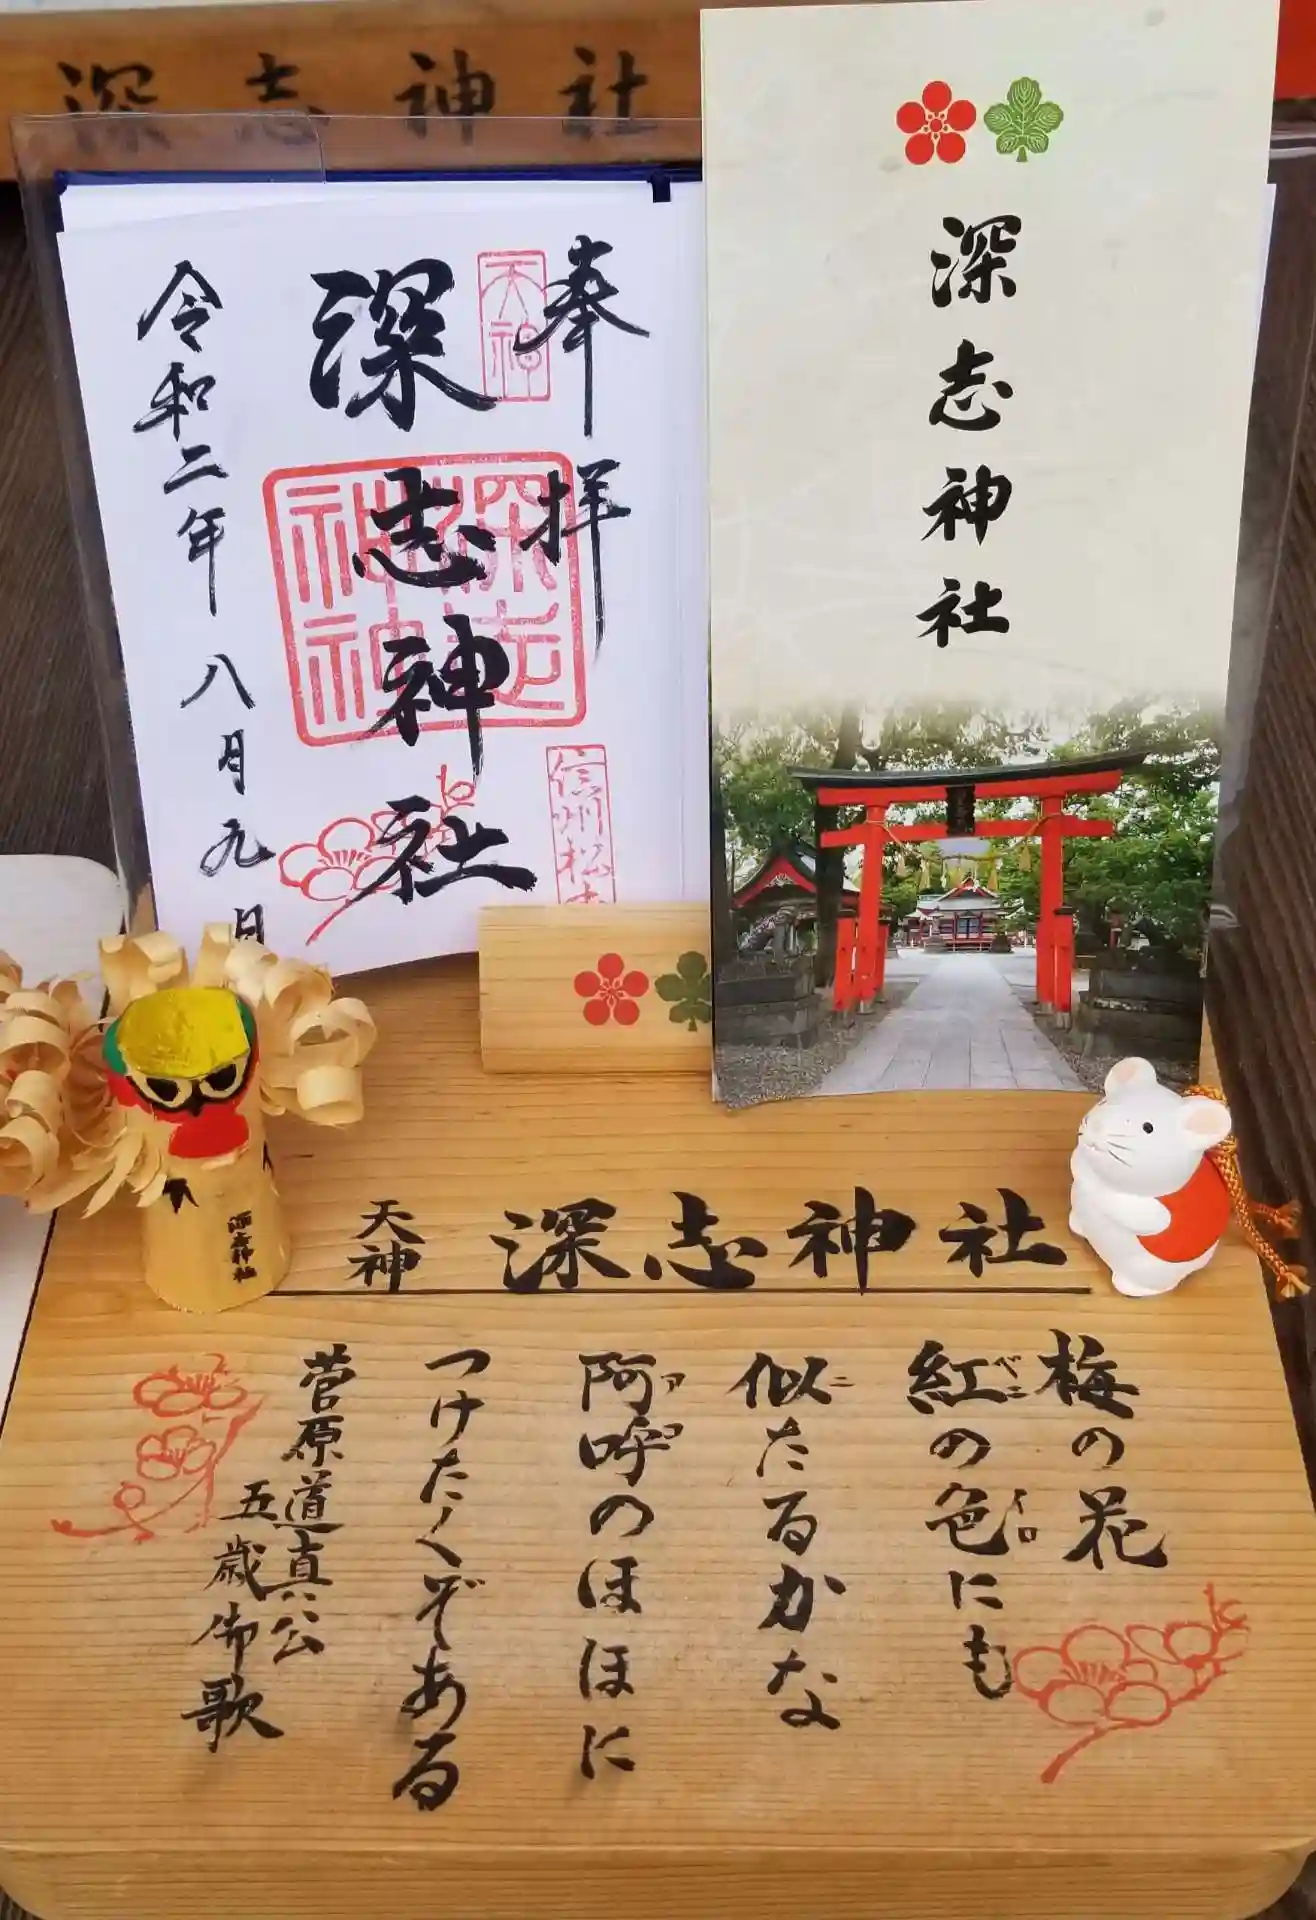 深志神社
奉拝
天神
深志神社
令和二年八月九日
信州松本
深志神社
深志神社
天神 深志神社
梅の花
紅の色にも
ベニ
イロ
似たるかな
ニ
阿呼のほほに
アコ
つけたくぞある
菅原道真公
五歳御歌